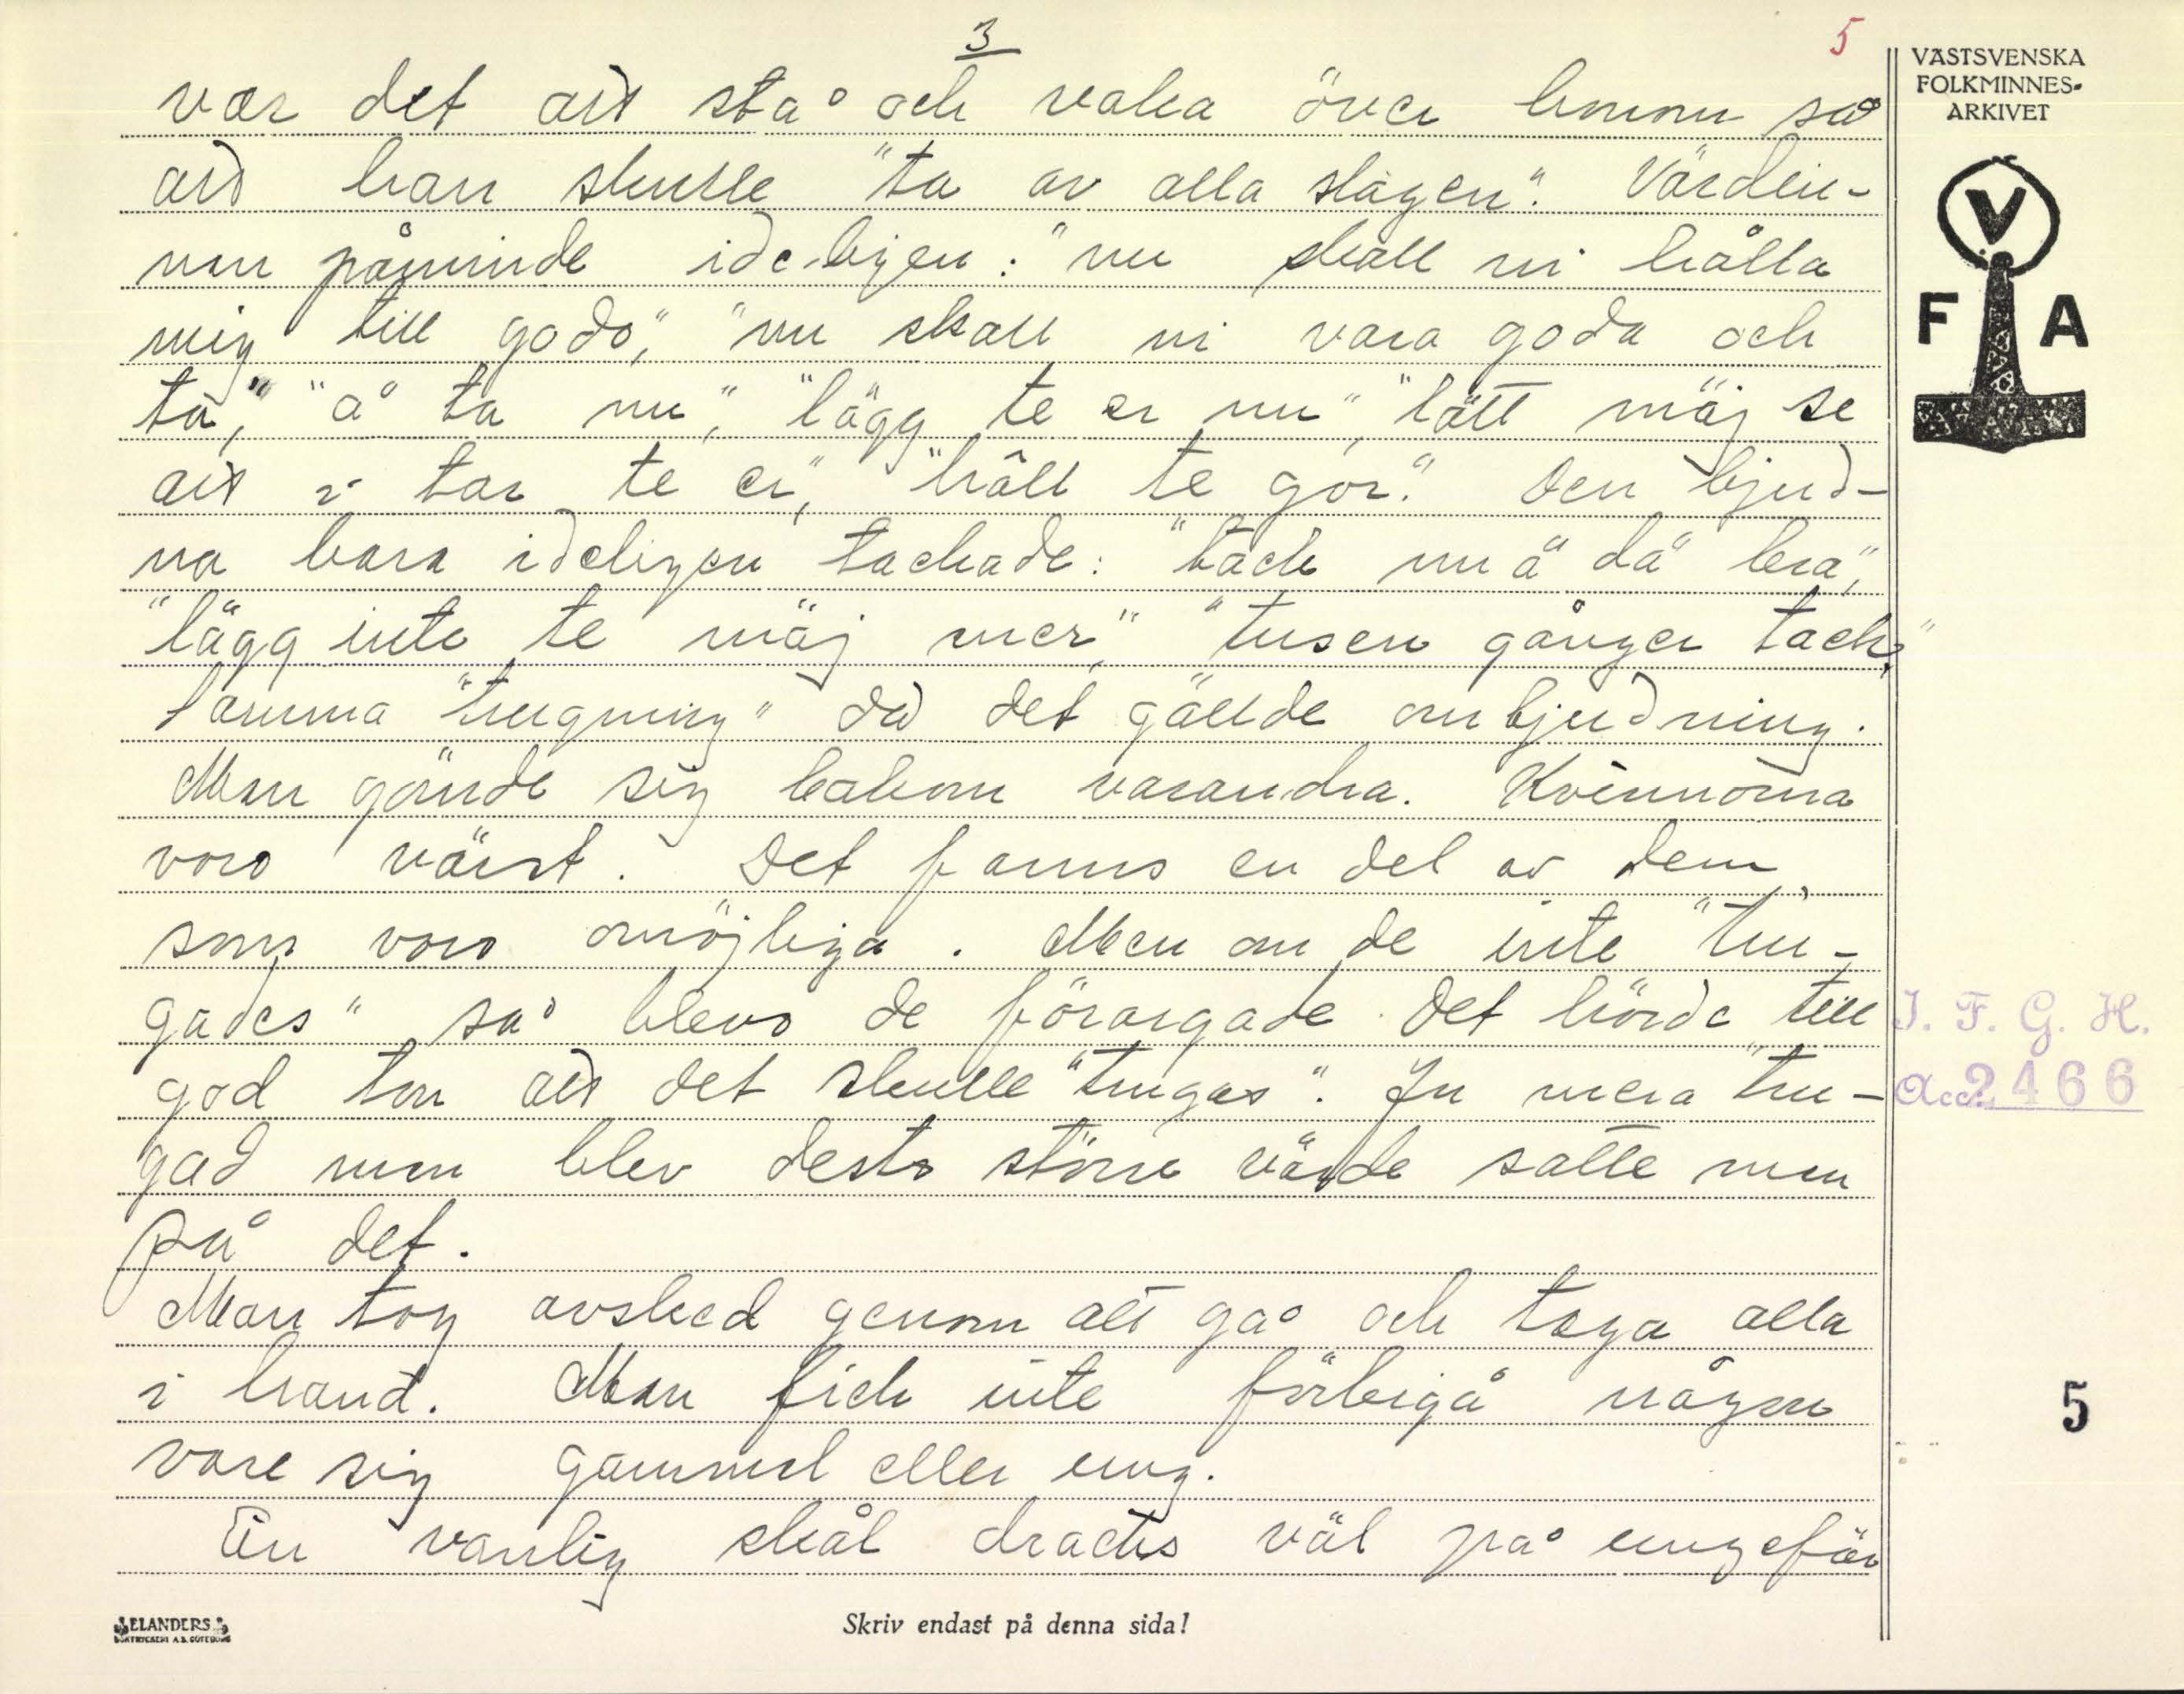 3
5
VÄSTSVENSKA
FOLKMINNES-
ARKIVET
V
F A
var det att stå och vaka över honom så
att han skulle "ta av alla slagen". Värdin-
nan påminde ideligen: "nu skall ni hålla
mig till godo", "nu skall ni vara goda och
ta", "å ta nu", "lägg te er nu", "lått mäj se
att i tar te er", "håll te gor". Den bjud-
na bara ideligen tackade: "tack nu ä dä bra",
"lägg inte te mäj mer", "tusen gånger tack."
Samma "trugning" då det gällde ombjudning.
Man gömde sig bakom varandra. Kvinnorna
voro värst. Det fanns en del av dem,
som voro omöjliga. Men om de inte "tru-
gades" så blevo de förargade. Det hörde till
god ton att det skulle "trugas". Ju mera "tru-
gad man blev desto större värde satte man
på det.
Man tog avsked genom att gå och taga alla
i hand. Man fick inte förbigå någon
vare sig gammal eller ung.
En vanlig skål dracks väl på ungefär
I. F. G. H.
Acc. 2466
5
ELANDERS
BOKTRYCKERI A.B. GÖTEBORG
Skriv endast på denna sida!